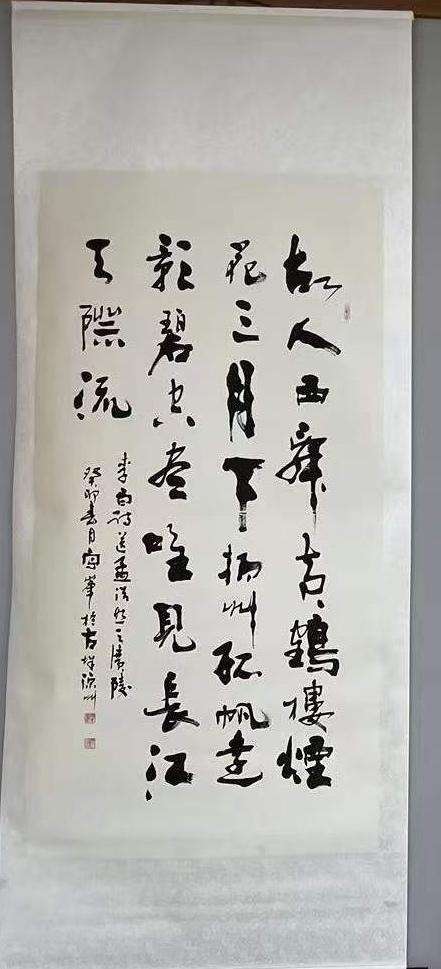 故人西辭黃鶴樓煙
花三月下揚州孤帆遠
影碧空盡唯見長江
天際流
李白詩送孟浩然之廣陵
癸卯春月華於古涼州